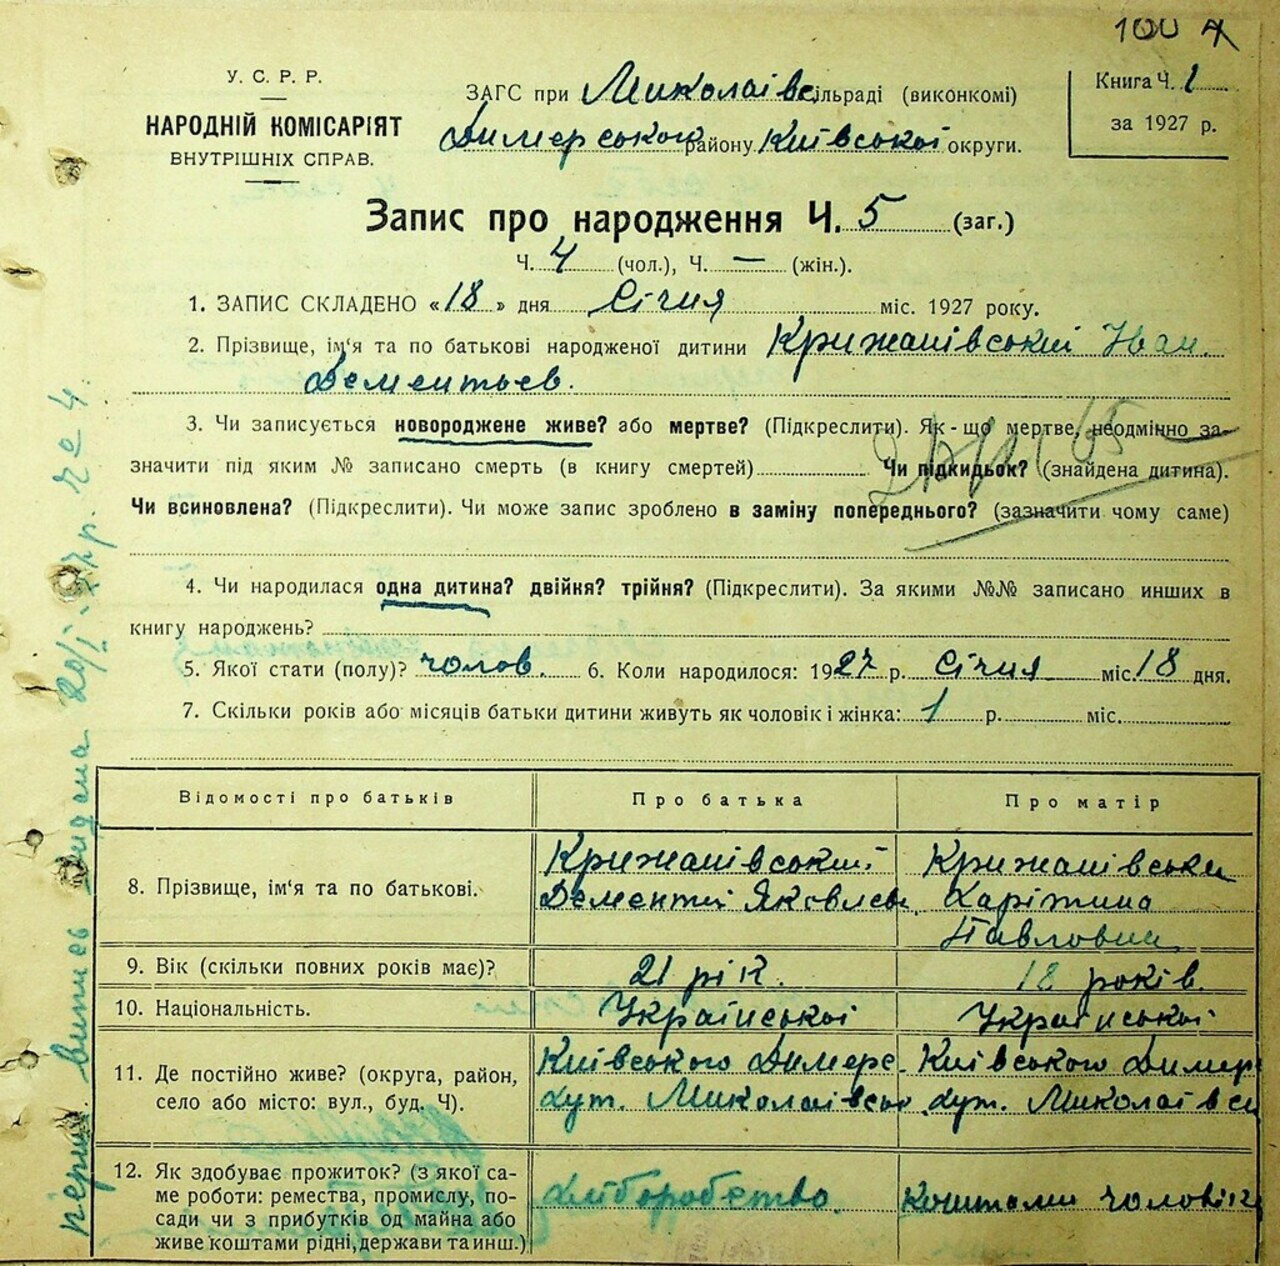 100
У. С. Р. Р.
НАРОДНІЙ КОМІСАРІЯТ
ВНУТРІШНІХ СПРАВ.
ЗАГС при Миколаївс. сільраді (виконкомі)
Димерського району Київської округи.
Книга Ч. 1
за 1927 р.
Запис про народження Ч. 5 (заг.)
Ч. 4 (чол.), Ч. — (жін.).
1. ЗАПИС СКЛАДЕНО «18» дня Січня міс. 1927 року.
2. Прізвище, ім'я та по батькові народженої дитини Крижанівський Іван
Дементьев.
3. Чи записується новороджене живе? або мертве? (Підкреслити). Як-що мертве, неодмінно за-
значити під яким № записано смерть (в книгу смертей) Чи підкидьок? (знайдена дитина).
Чи всиновлена? (Підкреслити). Чи може запис зроблено в заміну попереднього? (зазначити чому саме)
4. Чи народилася одна дитина? двійня? трійня? (Підкреслити). За якими №№ записано инших в
книгу народжень?
5. Якої стати (полу)? чолов. 6. Коли народилося: 1927 р. січня міс. 18 дня.
7. Скільки років або місяців батьки дитини живуть як чоловік і жінка: 1 р. міс.
Відомості про батьків Про батька Про матір
8. Прізвище, ім'я та по батькові.
Крижанівський
Дементій Яковлев.
Крижанівська
Харітина
Павловна
9. Вік (скільки повних років має)? 21 рік. 18 років.
10. Національність. Української Української
11. Де постійно живе? (округа, район,
село або місто: вул., буд. Ч).
Київського Димерс.
Хут. Миколаївсь
Київського Димер
Хут. Миколаївсь
12. Як здобуває прожиток? (з якої са-
ме роботи: ремества, промислу, по-
сади чи з прибутків од майна або
живе коштами рідні, держави та инш.)
Хліборобство.
Коштами чоловіка
перш. витись видана 20/I-27р. № 4.